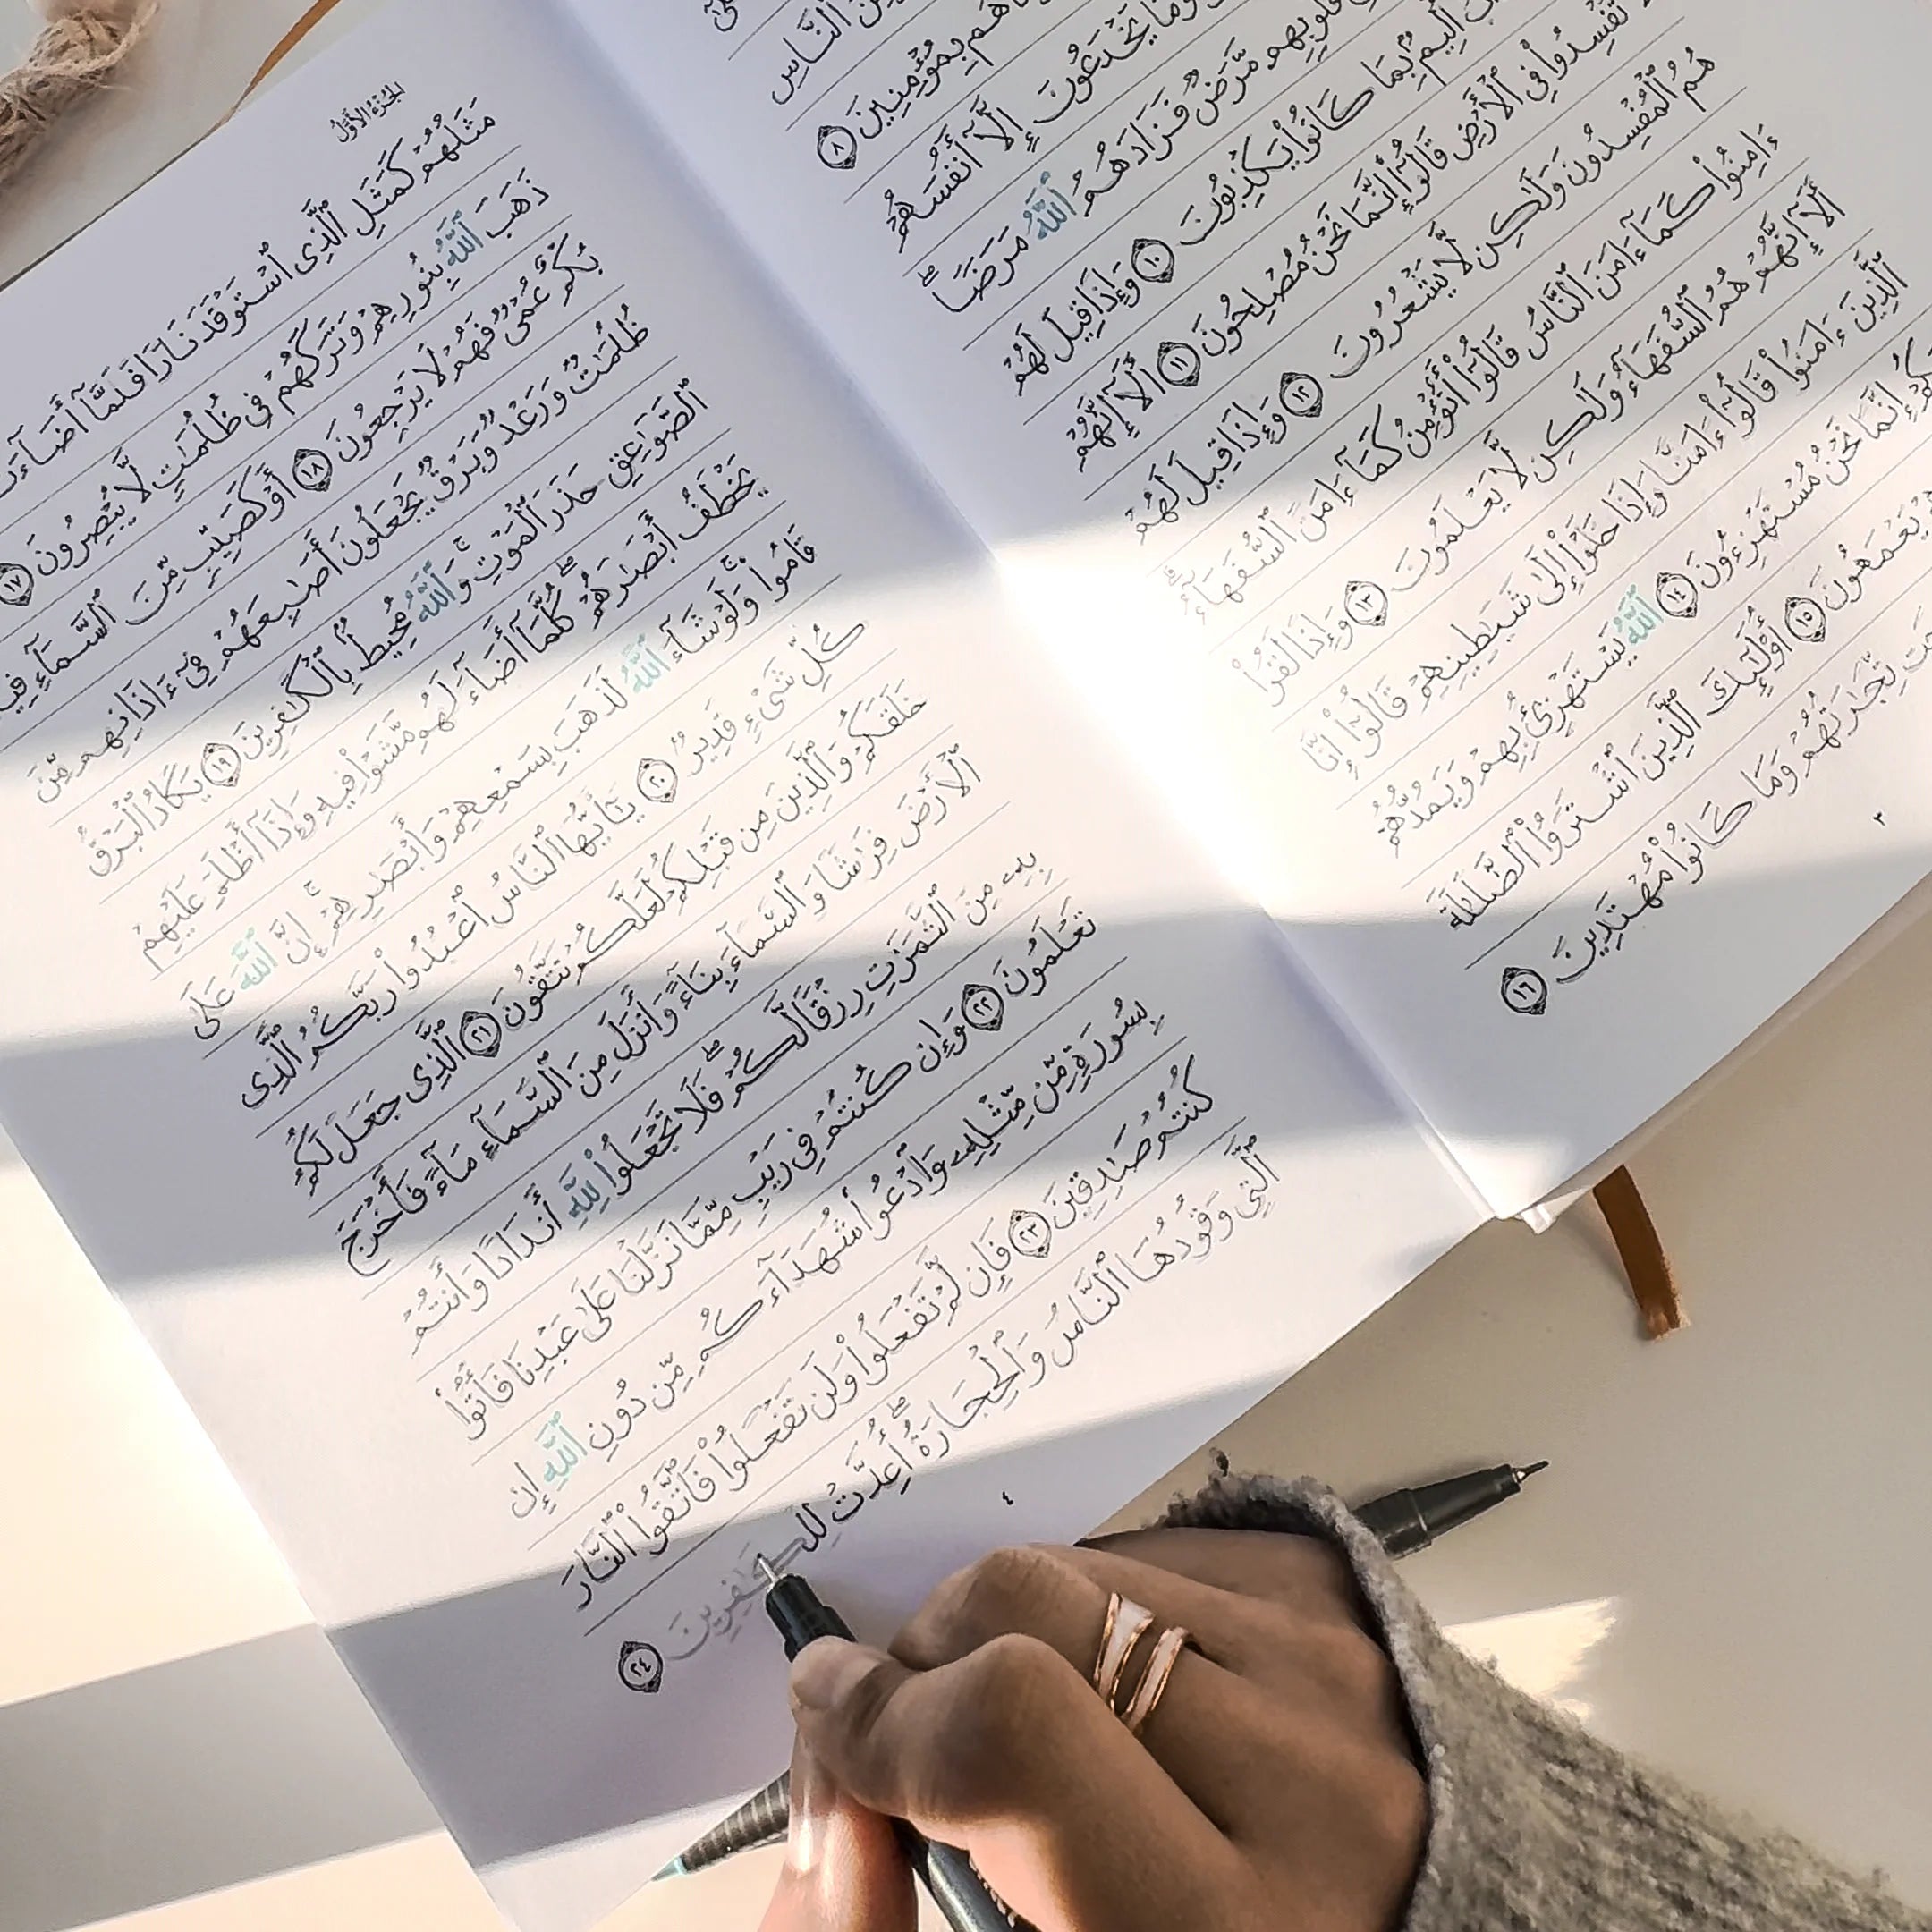 ٱلنَّاسِ
هُم بِمُؤْمِنِينَ ٨
وَمَا يَخْدَعُونَ إِلَّآ أَنفُسَهُمْ
قُلُوبِهِم مَّرَضٌ فَزَادَهُمُ ٱللَّهُ مَرَضًا ۖ
أَلِيمٌۢ بِمَا كَانُوا۟ يَكْذِبُونَ ١٠ وَإِذَا قِيلَ لَهُمْ
تُفْسِدُوا۟ فِى ٱلْأَرْضِ قَالُوٓا۟ إِنَّمَا نَحْنُ مُصْلِحُونَ ١١ أَلَآ إِنَّهُمْ
هُمُ ٱلْمُفْسِدُونَ وَلَـٰكِن لَّا يَشْعُرُونَ ١٢ وَإِذَا قِيلَ لَهُمْ
ءَامِنُوا۟ كَمَآ ءَامَنَ ٱلنَّاسُ قَالُوٓا۟ أَنُؤْمِنُ كَمَآ ءَامَنَ ٱلسُّفَهَآءُ ۗ
أَلَآ إِنَّهُمْ هُمُ ٱلسُّفَهَآءُ وَلَـٰكِن لَّا يَعْلَمُونَ ١٣ وَإِذَا لَقُوا۟
ٱلَّذِينَ ءَامَنُوا۟ قَالُوٓا۟ ءَامَنَّا وَإِذَا خَلَوْا۟ إِلَىٰ شَيَـٰطِينِهِمْ قَالُوٓا۟ إِنَّا
إِنَّمَا نَحْنُ مُسْتَهْزِءُونَ ١٤ ٱللَّهُ يَسْتَهْزِئُ بِهِمْ وَيَمُدُّهُمْ
يَعْمَهُونَ ١٥ أُو۟لَـٰٓئِكَ ٱلَّذِينَ ٱشْتَرَوُا۟ ٱلضَّلَـٰلَةَ
تِّجَـٰرَتُهُمْ وَمَا كَانُوا۟ مُهْتَدِينَ ١٦
٣
الجُزْءُ الأَوَّلُ
مَثَلُهُمْ كَمَثَلِ ٱلَّذِى ٱسْتَوْقَدَ نَارًا فَلَمَّآ أَضَآءَتْ
ذَهَبَ ٱللَّهُ بِنُورِهِمْ وَتَرَكَهُمْ فِى ظُلُمَـٰتٍ لَّا يُبْصِرُونَ ١٧
بُكْمٌ عُمْىٌ فَهُمْ لَا يَرْجِعُونَ ١٨ أَوْ كَصَيِّبٍ مِّنَ ٱلسَّمَآءِ فِيهِ
ظُلُمَـٰتٌ وَرَعْدٌ وَبَرْقٌ يَجْعَلُونَ أَصَـٰبِعَهُمْ فِىٓ ءَاذَانِهِم مِّنَ
ٱلصَّوَٰعِقِ حَذَرَ ٱلْمَوْتِ ۚ وَٱللَّهُ مُحِيطٌۢ بِٱلْكَـٰفِرِينَ ١٩ يَكَادُ ٱلْبَرْقُ
يَخْطَفُ أَبْصَـٰرَهُمْ ۖ كُلَّمَآ أَضَآءَ لَهُم مَّشَوْا۟ فِيهِ وَإِذَآ أَظْلَمَ عَلَيْهِمْ
قَامُوا۟ ۚ وَلَوْ شَآءَ ٱللَّهُ لَذَهَبَ بِسَمْعِهِمْ وَأَبْصَـٰرِهِمْ ۚ إِنَّ ٱللَّهَ عَلَىٰ
كُلِّ شَىْءٍ قَدِيرٌ ٢٠ يَـٰٓأَيُّهَا ٱلنَّاسُ ٱعْبُدُوا۟ رَبَّكُمُ ٱلَّذِى
خَلَقَكُمْ وَٱلَّذِينَ مِن قَبْلِكُمْ لَعَلَّكُمْ تَتَّقُونَ ٢١ ٱلَّذِى جَعَلَ لَكُمُ
ٱلْأَرْضَ فِرَٰشًا وَٱلسَّمَآءَ بِنَآءً وَأَنزَلَ مِنَ ٱلسَّمَآءِ مَآءً فَأَخْرَجَ
بِهِۦ مِنَ ٱلثَّمَرَٰتِ رِزْقًا لَّكُمْ ۖ فَلَا تَجْعَلُوا۟ لِلَّهِ أَندَادًا وَأَنتُمْ
تَعْلَمُونَ ٢٢ وَإِن كُنتُمْ فِى رَيْبٍ مِّمَّا نَزَّلْنَا عَلَىٰ عَبْدِنَا فَأْتُوا۟
بِسُورَةٍ مِّن مِّثْلِهِۦ وَٱدْعُوا۟ شُهَدَآءَكُم مِّن دُونِ ٱللَّهِ إِن
كُنتُمْ صَـٰدِقِينَ ٢٣ فَإِن لَّمْ تَفْعَلُوا۟ وَلَن تَفْعَلُوا۟ فَٱتَّقُوا۟ ٱلنَّارَ
ٱلَّتِى وَقُودُهَا ٱلنَّاسُ وَٱلْحِجَارَةُ ۖ أُعِدَّتْ لِلْكَـٰفِرِينَ ٢٤
٤